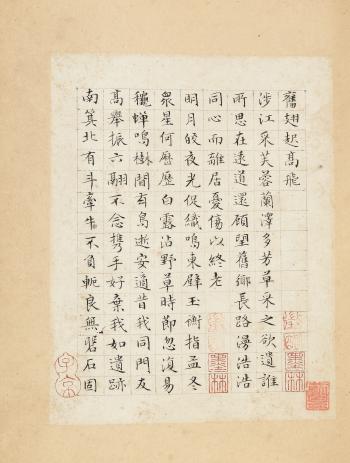 奮翅起高飛
涉江采芙蓉蘭澤多芳草采之欲遺誰
所思在遠道還顧望舊鄉長路漫浩浩
同心而離居憂傷以終老
明月皎夜光促織鳴東壁玉衡指孟冬
衆星何歷歷白露沾野草時節忽復易
龝蟬鳴樹間玄鳥逝安適昔我同門友
高舉振六翮不念携手好棄我如遺跡
南箕北有斗牽牛不負軛良無磐石固
墨林
墨林
子京